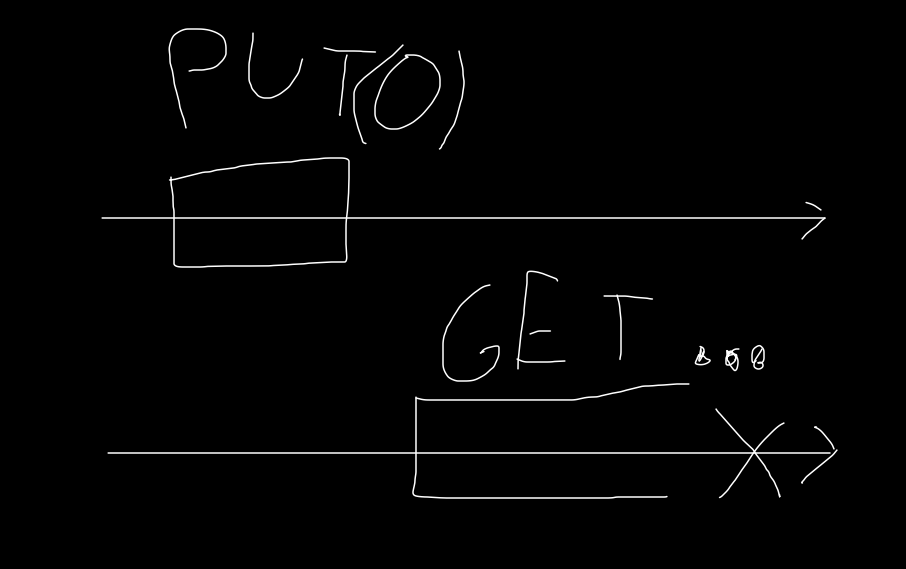 PUT(0)
GET...
X